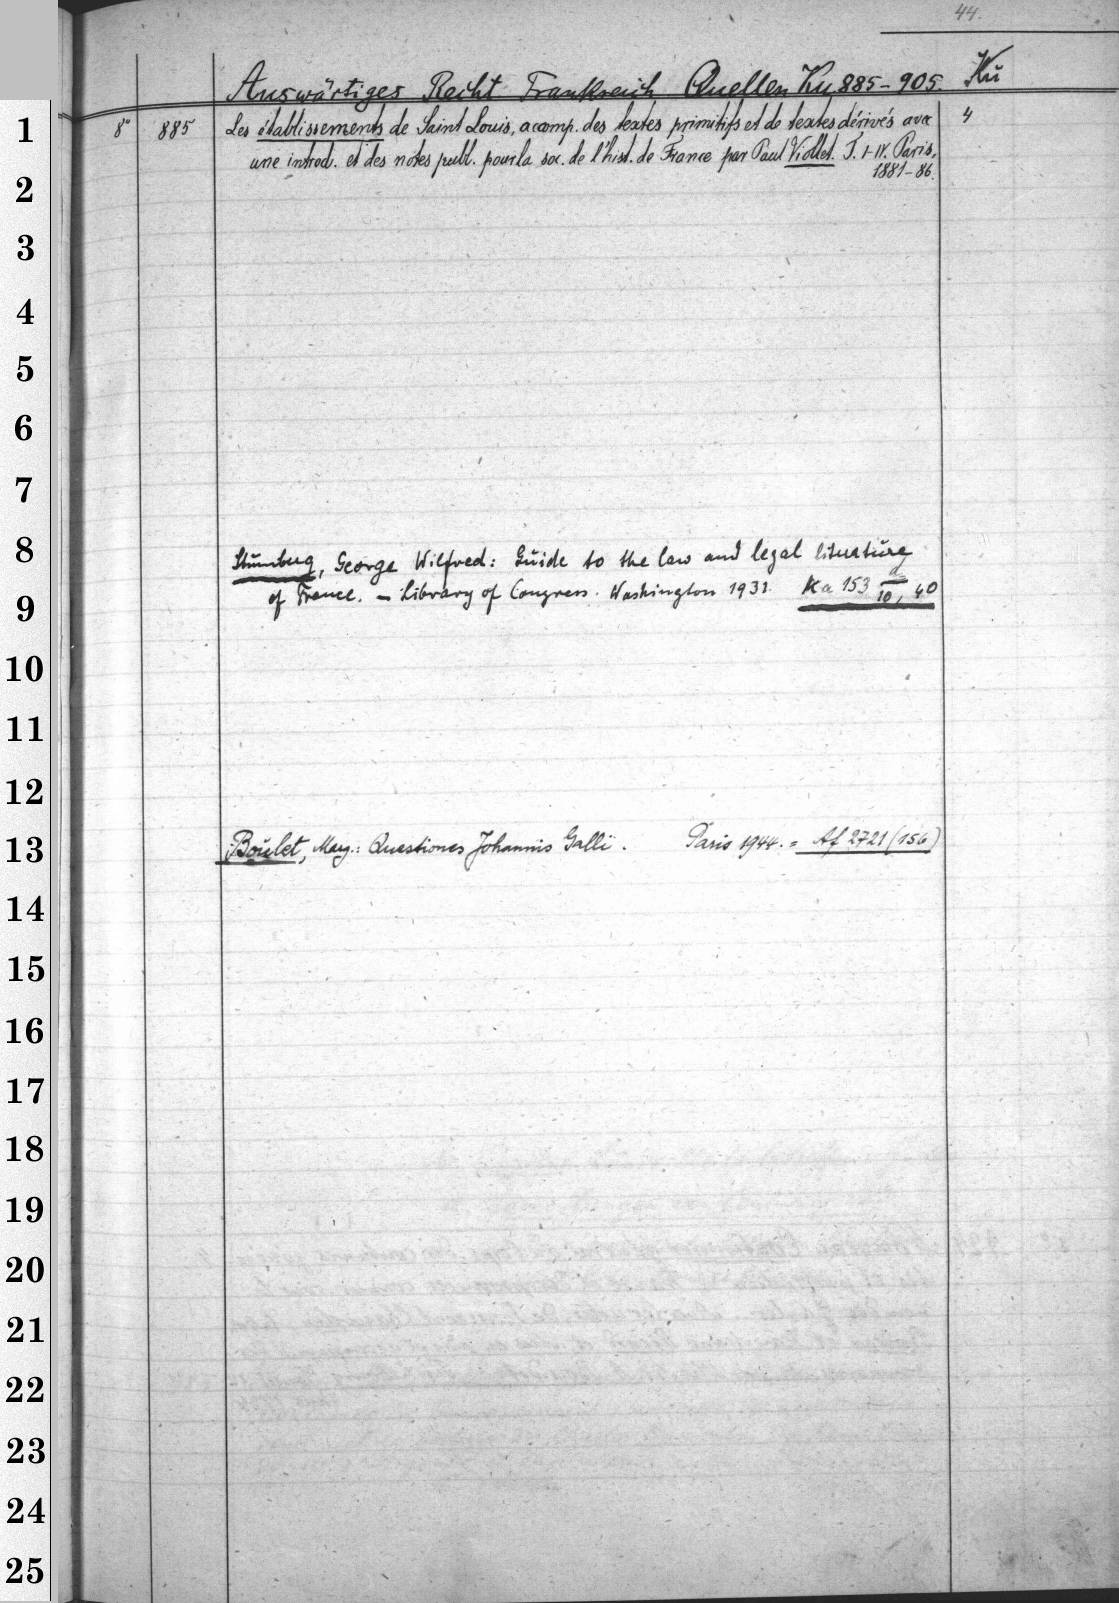 44.
Auswärtiges Recht Frankreich Quellen Ku 885-905. Ku
1 8° 885 Les établissements de Saint Louis, acomp. des textes primitifs et de textes dérivés avec 4
une introd. et des notes publ. pour la soc. de l'hist. de France par Paul Viollet. T. I-IV. Paris,
1881-86.
2
3
4
5
6
7
8 Stumberg, George Wilfred: Guide to the law and legal literature
9 of France. - Library of Congress. Washington 1931. Ka 153 d/10, 40
10
11
12
13 Boulet, Marg.: Questiones Johannis Galli. Paris 1944. = Af 2721 (156)
14
15
16
17
18
19
20
21
22
23
24
25